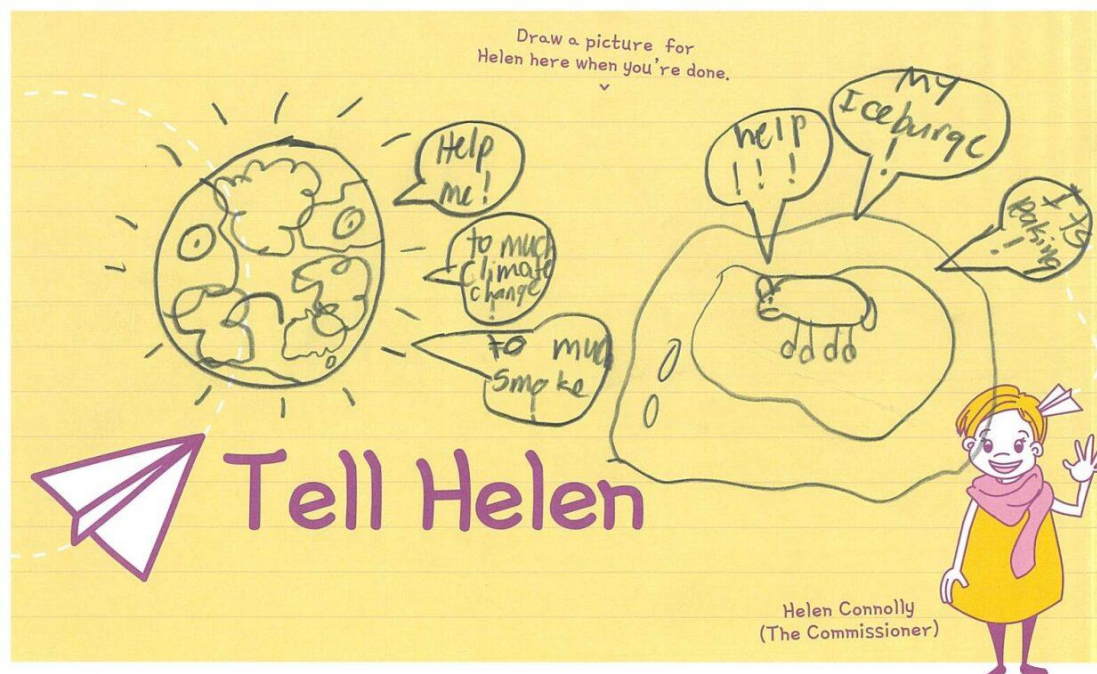 Draw a picture for
Helen here when you're done.
Help
me!
to much
climate
change
!
to much
Smoke
!
help
! ! !
My
Iceburge
!
I TS
!
Tell Helen
Helen Connolly
(The Commissioner)